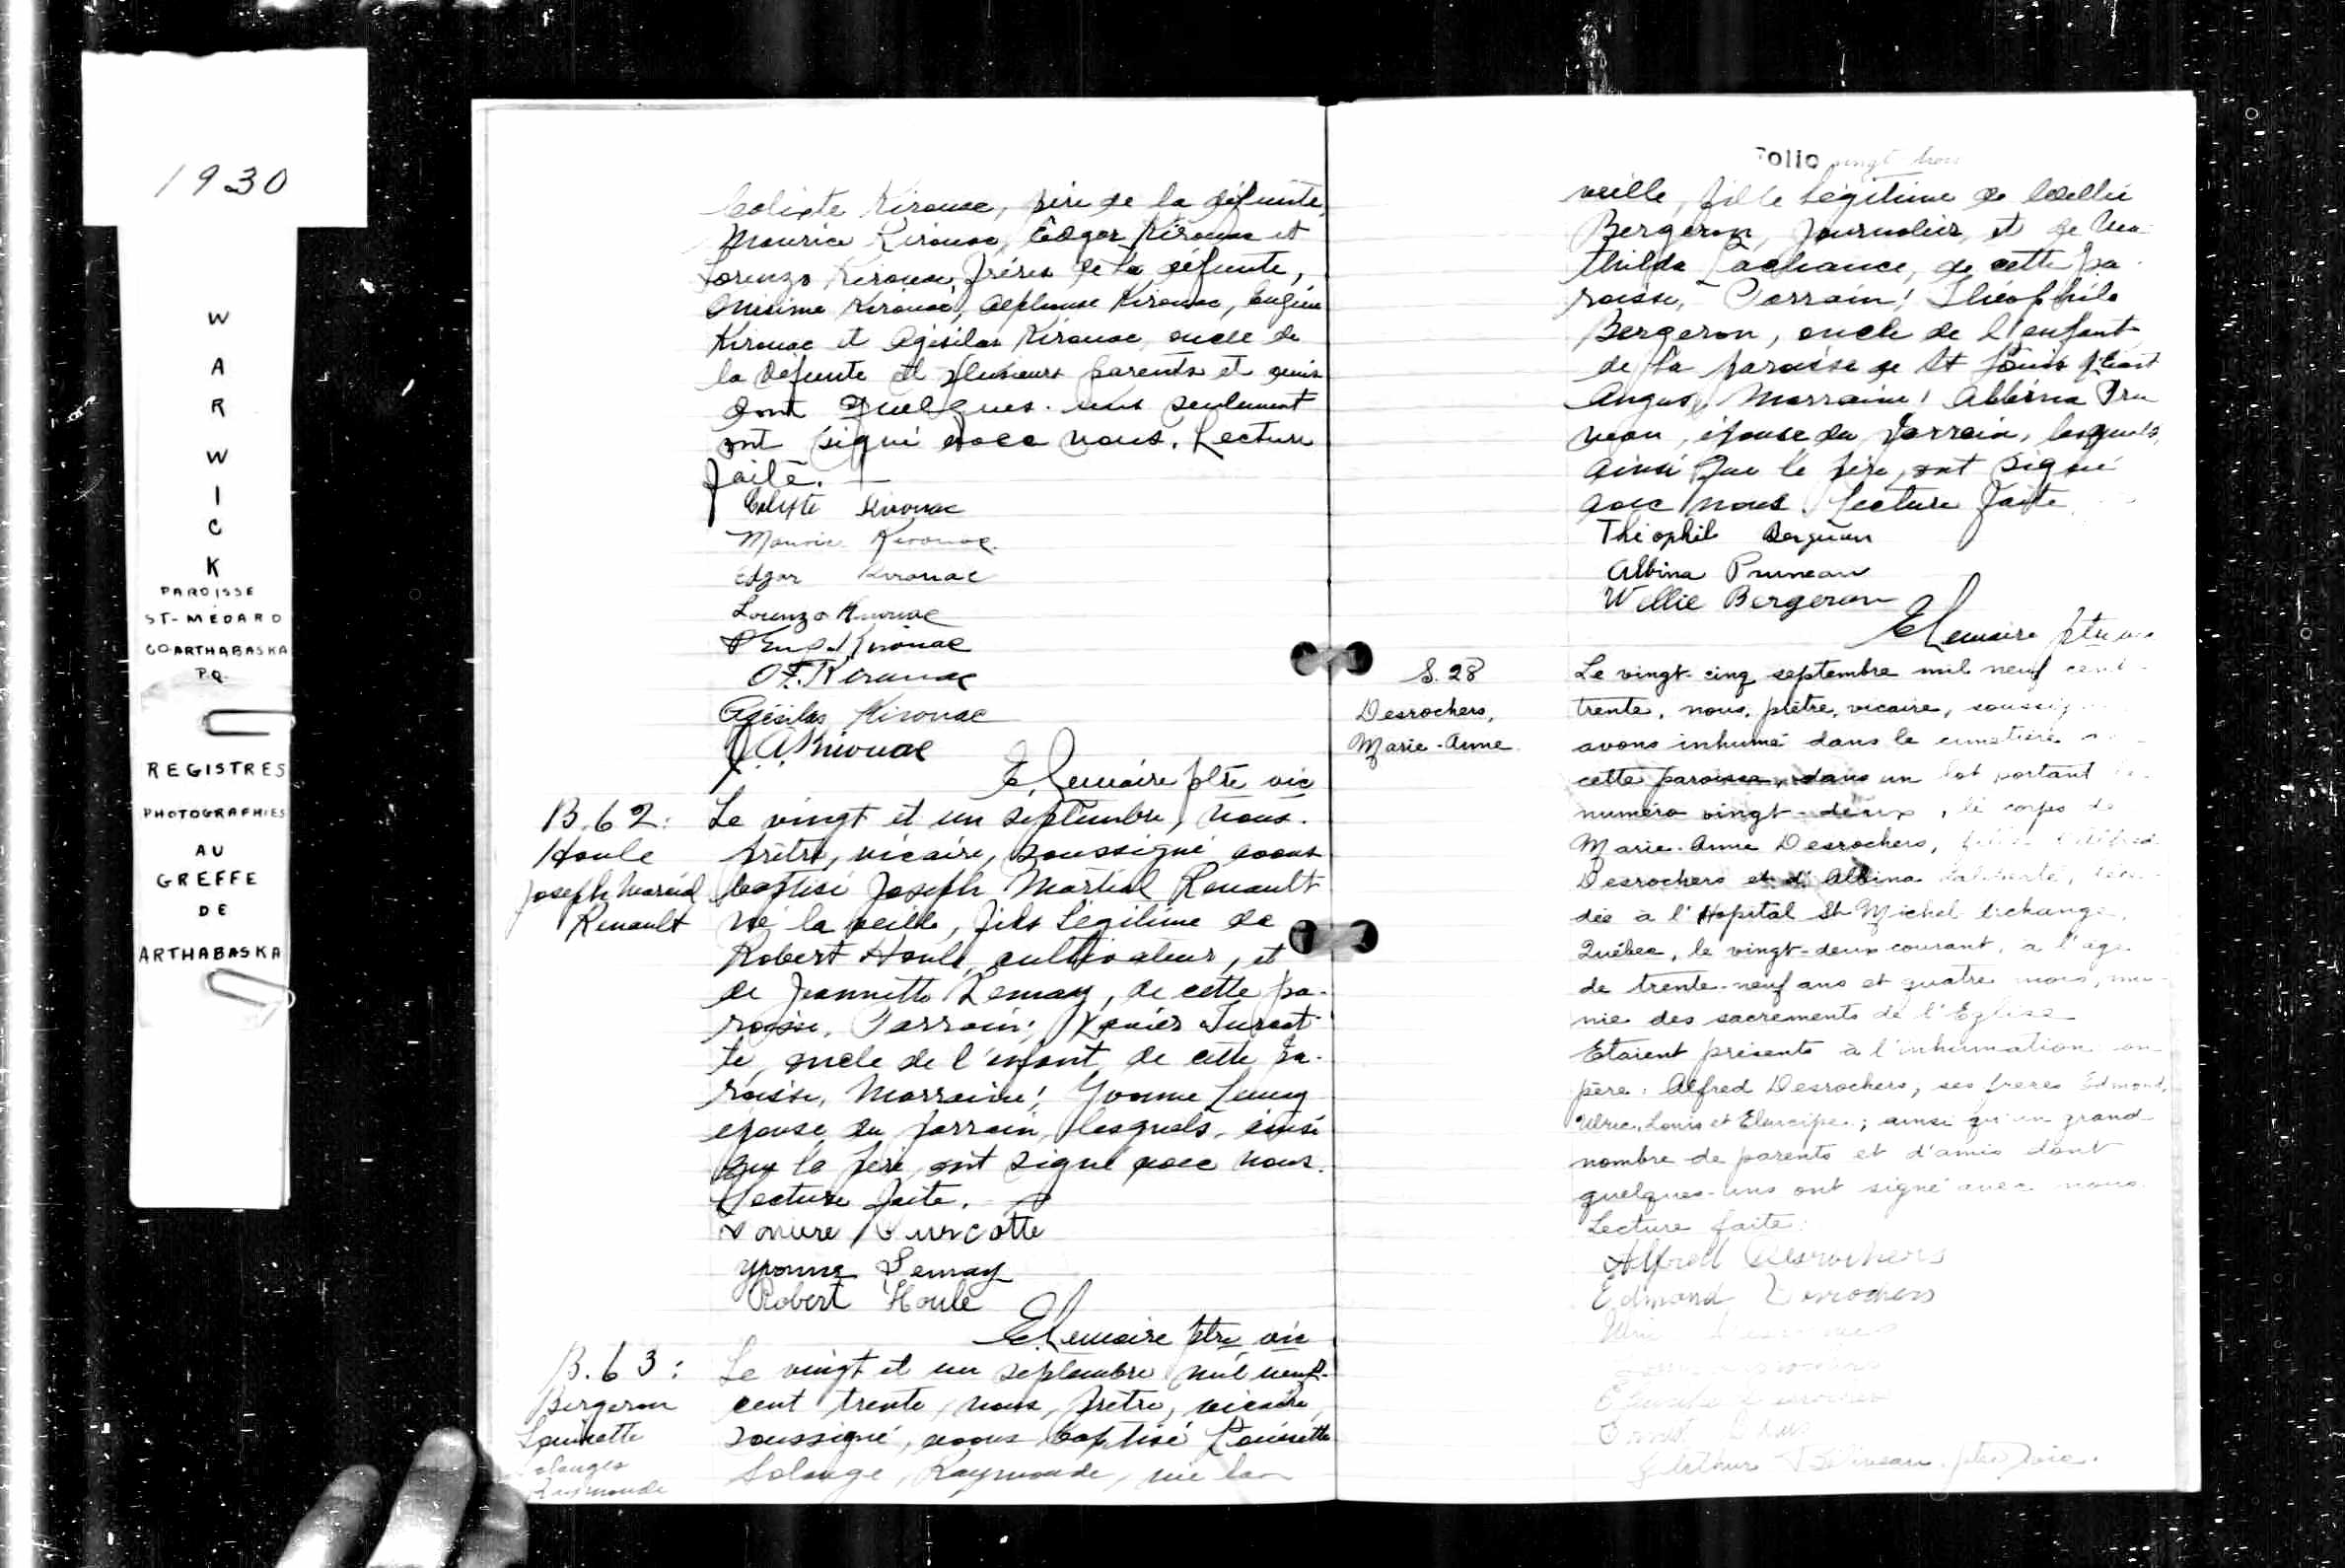 1930
W
A
R
W
I
C
K
PAROISSE
ST-MÉDARD
CO ARTHABASKA
P.Q.
REGISTRES
PHOTOGRAPHIES
AU
GREFFE
DE
ARTHABASKA
Calixte Kirouac, père de la défunte,
Maurice Kirouac, Edgar Kirouac et
Lorenzo Kirouac, frères de la défunte,
Onésime Kirouac, Alphonse Kirouac, Eugène
Kirouac et Agésilas Kirouac, oncle de
la défunte et plusieurs parents et amis
dont quelques-uns seulement
ont signé avec nous. Lecture
faite.
Calixte Kirouac
Maurice Kirouac
Edgar Kirouac
Lorenzo Kirouac
Eug. Kirouac
O. F. Kirouac
Agésilas Kirouac
J. A. Kirouac
E. Lemaire ptre vic
B. 62:
Houle
Joseph Martial
Renault
Le vingt et un septembre, nous.
prêtre, vicaire, soussigné avons
baptisé Joseph Martial Renault
né la veille, fils légitime de
Robert Houle, cultivateur, et
de Jeannette Lemay, de cette pa-
roisse. Parrain: Xavier Turcot-
te, oncle de l'enfant, de cette pa-
roisse. Marraine: Yvonne Lemay
épouse du parrain, lesquels, ainsi
que le père, ont signé avec nous.
Lecture faite.
Turcotte
Yvonne Lemay
Robert Houle
E. Lemaire ptre vic
B. 63:
Bergeron
Laurette
Solange
Raymonde
Le vingt et un septembre mil neuf-
cent trente, nous, prêtre, vicaire,
soussigné, avons baptisé Laurette
Solange, Raymonde, née la
Folio vingt trois
veille, fille légitime de Wellie
Bergeron, journalier, et de Ma-
thilda Lachance, de cette pa-
roisse, Parrain: Théophile
Bergeron, oncle de l'enfant
de la paroisse de St Louis d'East
Angus, Marraine: Albina Pru-
neau, épouse du parrain, lesquels,
ainsi que le père, ont signé
avec nous. Lecture faite
Théophil Bergeron
Albina Pruneau
Wellie Bergeron
E. Lemaire ptre vic
S. 28
Desrochers,
Marie-Anne
Le vingt-cinq septembre mil neuf cent-
trente, nous, prêtre, vicaire, soussig
avons inhumé dans le cimetière
cette paroisse, dans un lot portant le
numéro vingt-deux, le corps de
Marie-Anne Desrochers, fille d'Alfred
Desrochers et d'Albina Laliberté, décé-
dée à l'Hôpital St Michel Archange,
Québec, le vingt-deux courant, à l'âge
de trente-neuf ans et quatre mois, mu-
nie des sacrements de l'Eglise
Etaient présents à l'inhumation son
père: Alfred Desrochers, ses frères Edmond,
Ulric, Louis et Elucipe; ainsi qu'un grand
nombre de parents et d'amis dont
quelques-uns ont signé avec nous.
Lecture faite:
Alfred Desrochers
Edmond Desrochers
Ulric
Desrochers
Arthur ptre vic.